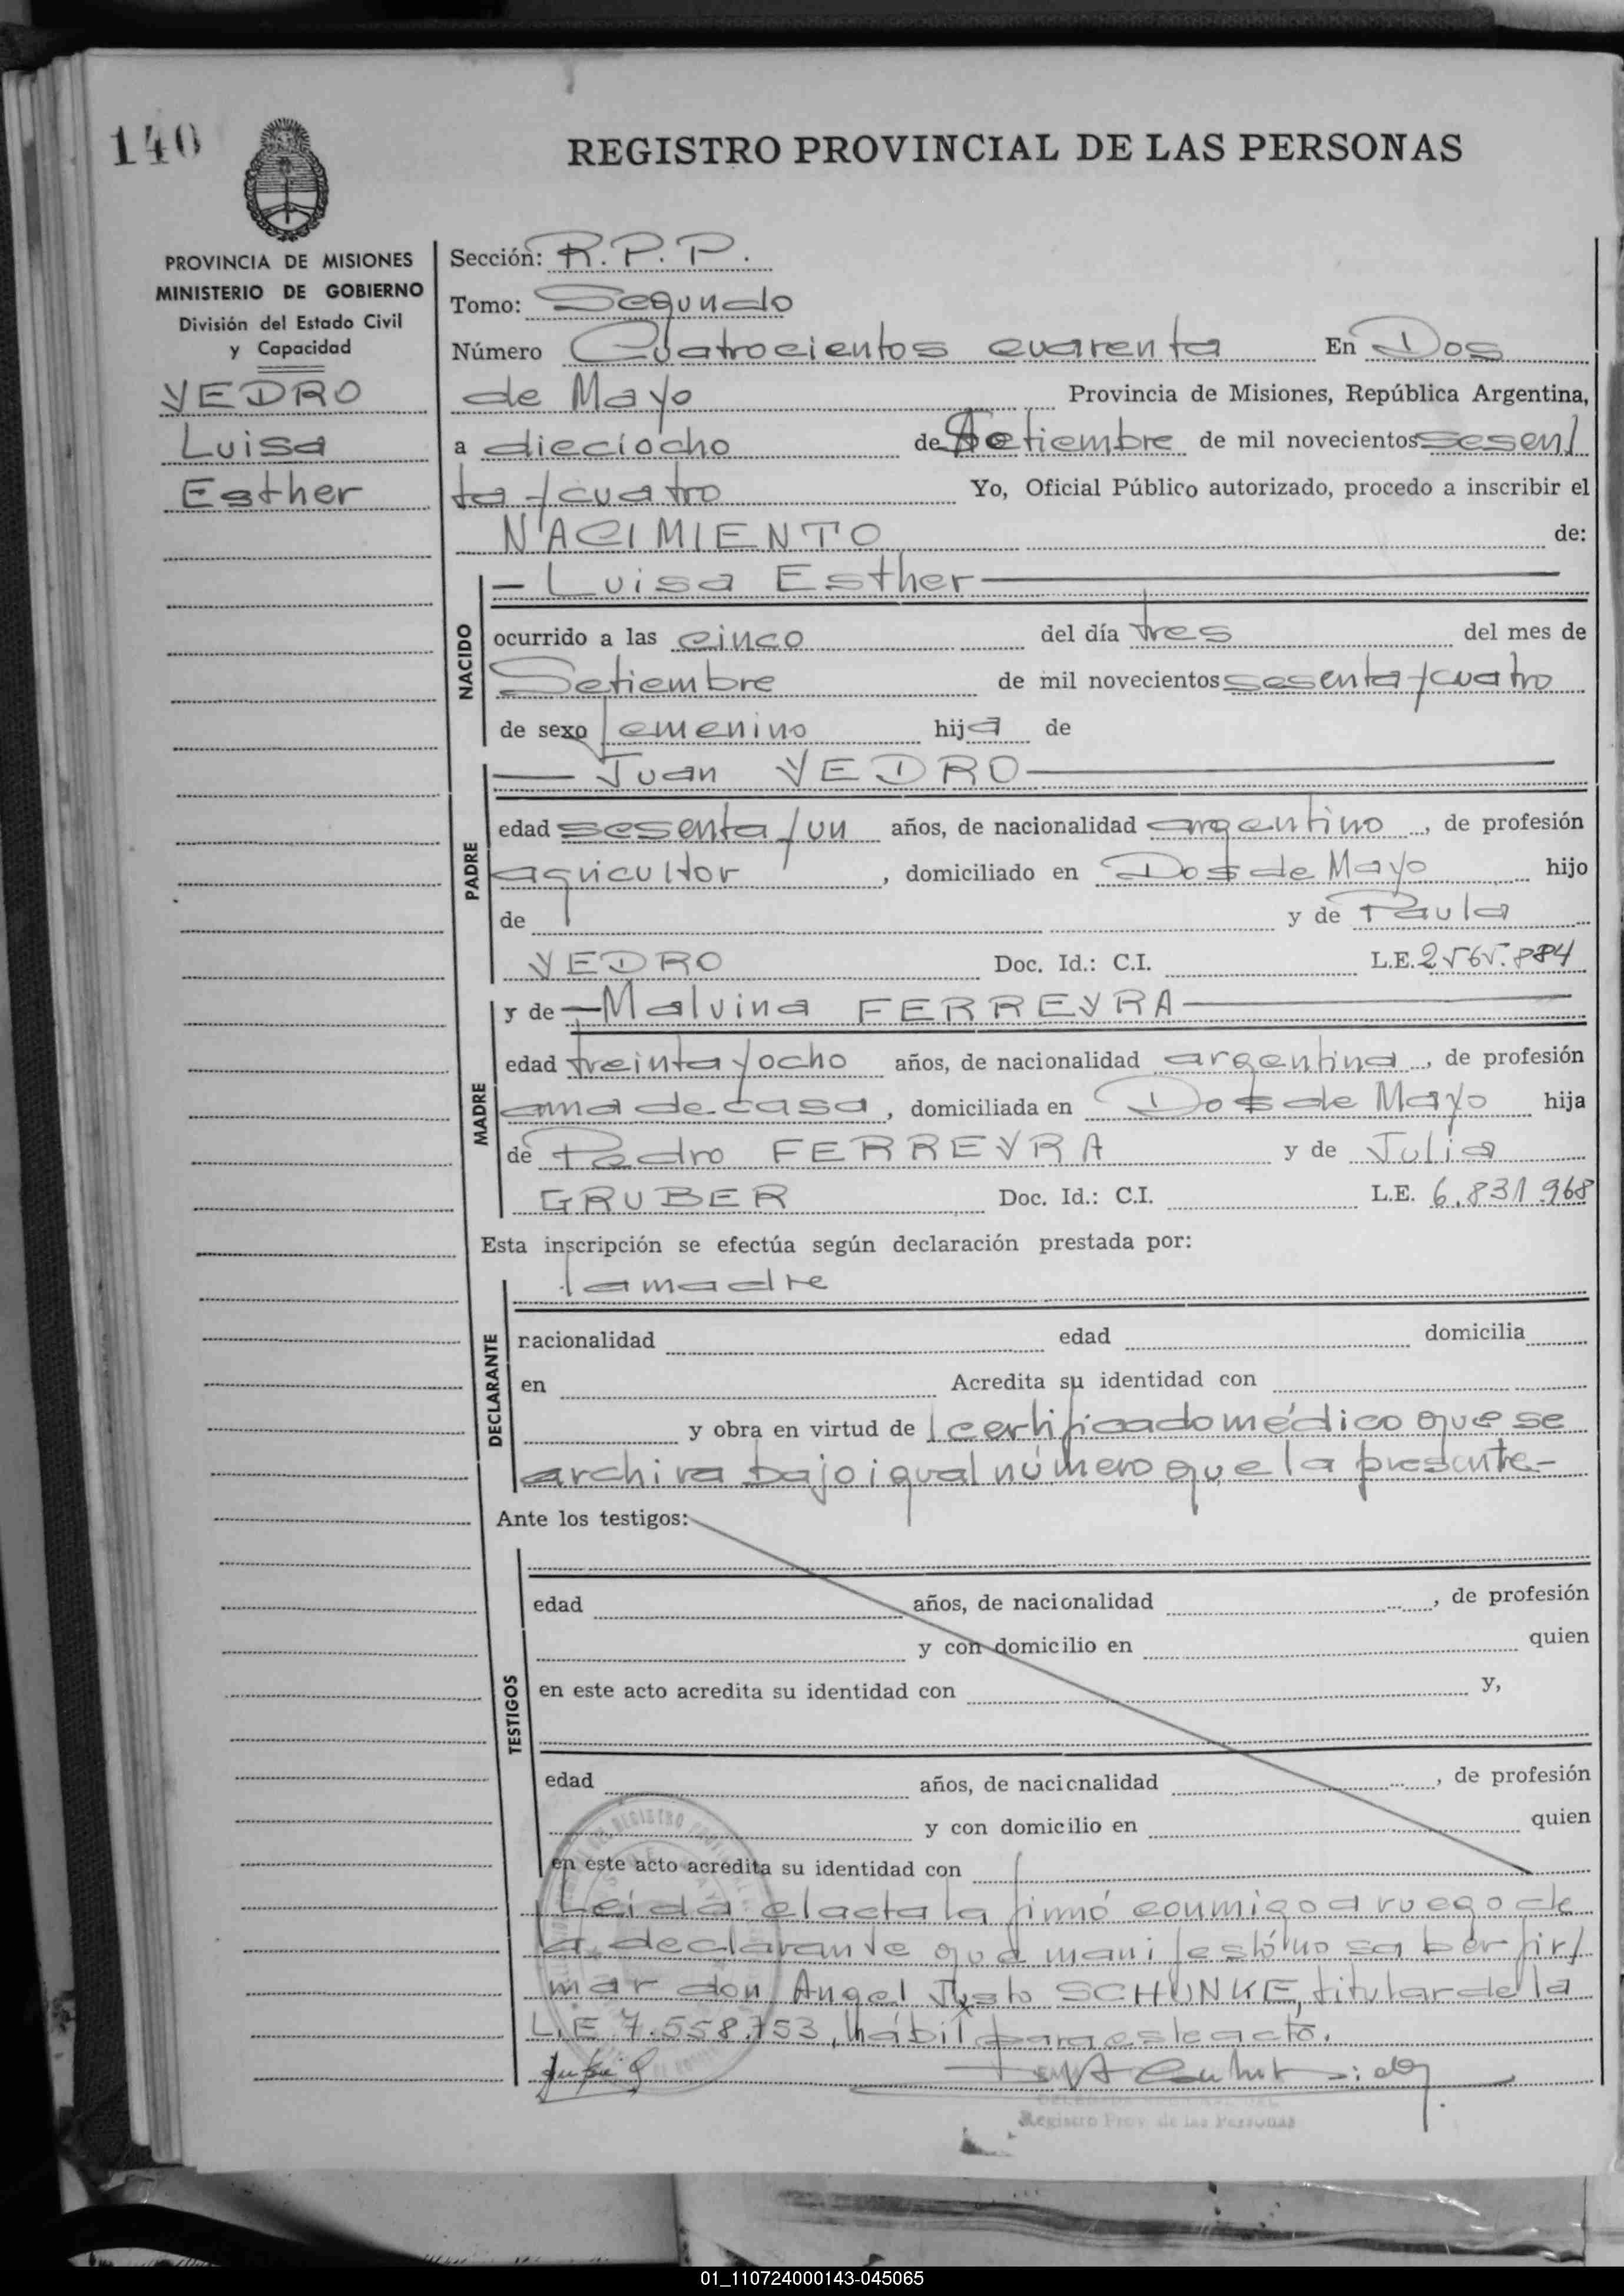 140
REGISTRO PROVINCIAL DE LAS PERSONAS
PROVINCIA DE MISIONES
MINISTERIO DE GOBIERNO
División del Estado Civil
y Capacidad
YEDRO
Luisa
Esther
Sección: R.P.P.
Tomo: Segundo
Número Cuatrocientos cuarenta En Dos
de Mayo Provincia de Misiones, República Argentina,
a dieciocho de Setiembre de mil novecientos sesen/
ta y cuatro Yo, Oficial Público autorizado, procedo a inscribir el
NACIMIENTO de:
NACIDO
— Luisa Esther —
ocurrido a las cinco del día tres del mes de
Setiembre de mil novecientos sesenta y cuatro
de sexo femenino hija de
PADRE
— Juan YEDRO —
edad sesenta y un años, de nacionalidad argentino, de profesión
agricultor, domiciliado en Dos de Mayo hijo
de y de Paula
YEDRO Doc. Id.: C.I. L.E. 2565.884
MADRE
y de — Malvina FERREYRA —
edad treinta y ocho años, de nacionalidad argentina, de profesión
ama de casa, domiciliada en Dos de Mayo hija
de Pedro FERREYRA y de Julia
GRUBER Doc. Id.: C.I. L.E. 6.831.968
Esta inscripción se efectúa según declaración prestada por:
DECLARANTE
la madre
nacionalidad edad domicilia
en Acredita su identidad con
y obra en virtud de certificado médico que se
archiva bajo igual número que la presente-
Ante los testigos:
TESTIGOS
edad años, de nacionalidad , de profesión
y con domicilio en quien
en este acto acredita su identidad con y,
edad años, de nacionalidad , de profesión
y con domicilio en quien
en este acto acredita su identidad con
Leida el acta la firmó conmigo a ruego de
la declarante que manifestó no saber fir/
mar don Angel Justo SCHUNKE, titular de la
L.E 7.558.753, hábil para este acto.
Registro Prov. de las Personas
01_110724000143-045065